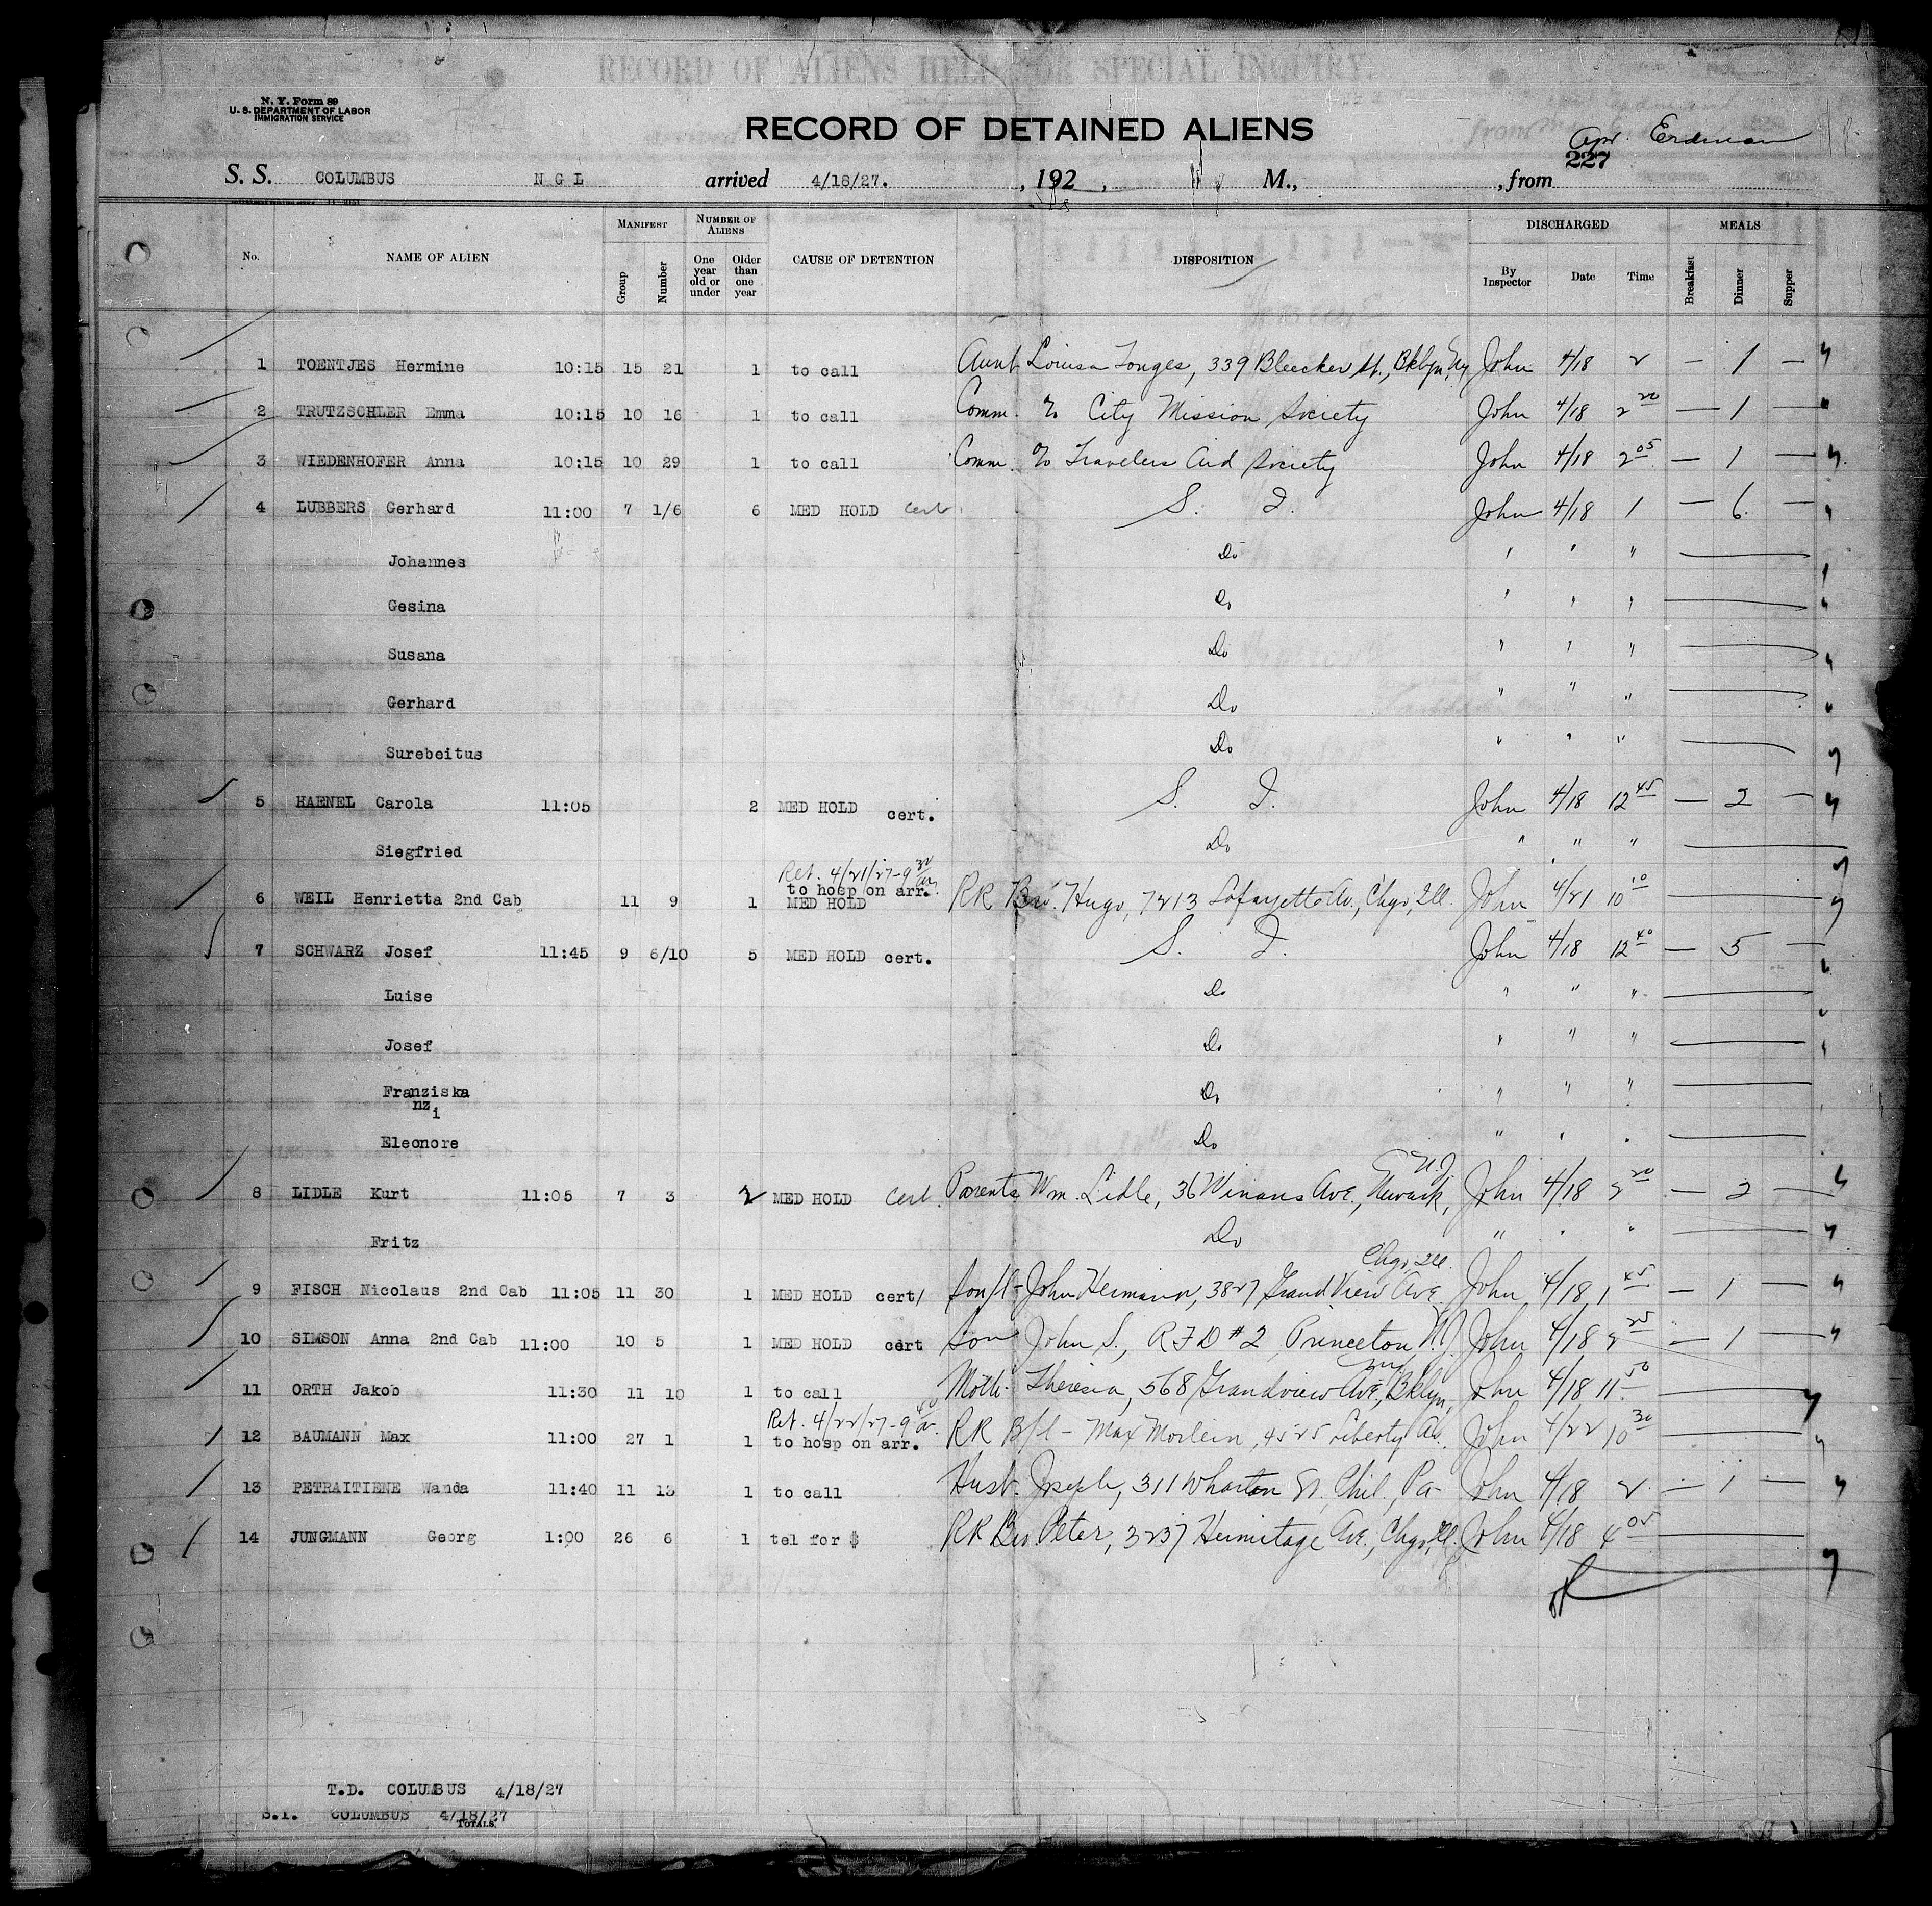 RECORD OF ALIENS HELD FOR SPECIAL INQUIRY.
N. Y. Form 89
U. S. DEPARTMENT OF LABOR
IMMIGRATION SERVICE
RECORD OF DETAINED ALIENS
Apr. Erdman
227
S. S. COLUMBUS N G L arrived 4/18/27. , 192 , M., , from
No. NAME OF ALIEN MANIFEST Group Number NUMBER OF ALIENS One year old or under Older than one year CAUSE OF DETENTION DISPOSITION DISCHARGED By Inspector Date Time MEALS Breakfast Dinner Supper
1 TOENTJES Hermine 10:15 15 21 1 to call Aunt Louisa Tonges, 339 Bleecker St., Bklyn, Ny John 4/18 2 — 1 —
2 TRUTZSCHLER Emma 10:15 10 16 1 to call Comm. % City Mission Society John 4/18 2 20 — 1 —
3 WIEDENHOFER Anna 10:15 10 29 1 to call Comm. % Travelers Aid Society John 4/18 2 05 — 1 —
4 LUBBERS Gerhard 11:00 7 1/6 6 MED HOLD cert. S. I. John 4/18 1 — 6 —
Johannes Do " " "
Gesina Do " " "
Susana Do " " "
Gerhard Do " " "
Surebeitus Do " " "
5 HAENEL Carola 11:05 2 MED HOLD cert. S. I. John 4/18 12 45 — 2 —
Siegfried Do " " "
Ret. 4/21/27 - 9 30 am
to hosp on arr.
6 WEIL Henrietta 2nd Cab 11 9 1 MED HOLD RR Bro. Hugo, 7213 Lafayette Av., Chgo, Ill. John 4/21 10 10
7 SCHWARZ Josef 11:45 9 6/10 5 MED HOLD cert. S. I. John 4/18 12 40 — 5 —
Luise Do " " "
Josef Do " " "
Franziska Do " " "
nz i
Eleonore Do " " "
N.J.
8 LIDLE Kurt 11:05 7 3 2 MED HOLD cert. Parents Wm. Lidle, 36 Winans Ave., Newark, John 4/18 2 20 — 2 —
Fritz Do " " "
Chgo, Ill.
9 FISCH Nicolaus 2nd Cab 11:05 11 30 1 MED HOLD cert/ Son/l - John Hermann, 3827 Grand View Ave. John 4/18 1 45 — 1 —
10 SIMSON Anna 2nd Cab 11:00 10 5 1 MED HOLD cert Son John S., RFD #2, Princeton, N.J. John 4/18 2 25 — 1 —
11 ORTH Jakob 11:30 11 10 1 to call Moth. Theresia, 568 Grandview Ave, Bklyn, Ny John 4/18 11 50
Ret. 4/22/27 - 9 40 a.
12 BAUMANN Max 11:00 27 1 1 to hosp on arr. RR B/l - Max Morlein, 4525 Liberty Av. John 4/22 10 30
13 PETRAITIENE Wanda 11:40 11 13 1 to call Husb. Joseph, 311 Wharton St, Phil., Pa John 4/18 2 — 1 —
14 JUNGMANN Georg 1:00 26 6 1 tel for $ RR Bro. Peter, 3237 Hermitage Ave., Chgo, Ill. John 4/18 4 05
T.D. COLUMBUS 4/18/27
S.I. COLUMBUS 4/18/27
TOTALS